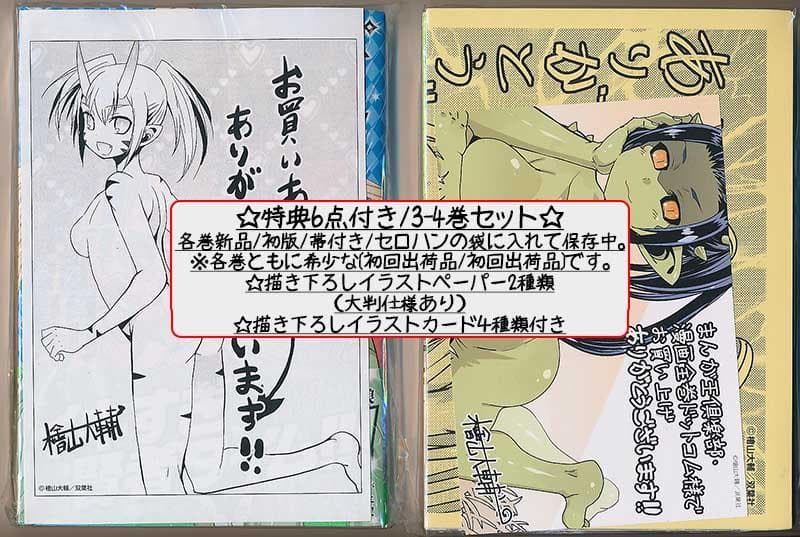 お買いあ
ありが
います!!
檜山大輔
©檜山大輔／双葉社
☆特典6点付き/3-4巻セット☆
各巻新品/初版/帯付き/セロハンの袋に入れて保存中。
※各巻ともに希少な(初回出荷品/初回出荷品)です。
☆描き下ろしイラストペーパー2種類
(大判仕様あり)
☆描き下ろしイラストカード4種類付き
ありがとう
まんが王倶楽部・
漫画全巻ドットコム様で
お買い上げ
ありがとうございます!!
檜山大輔
©檜山大輔／双葉社
©檜山大輔／双葉社